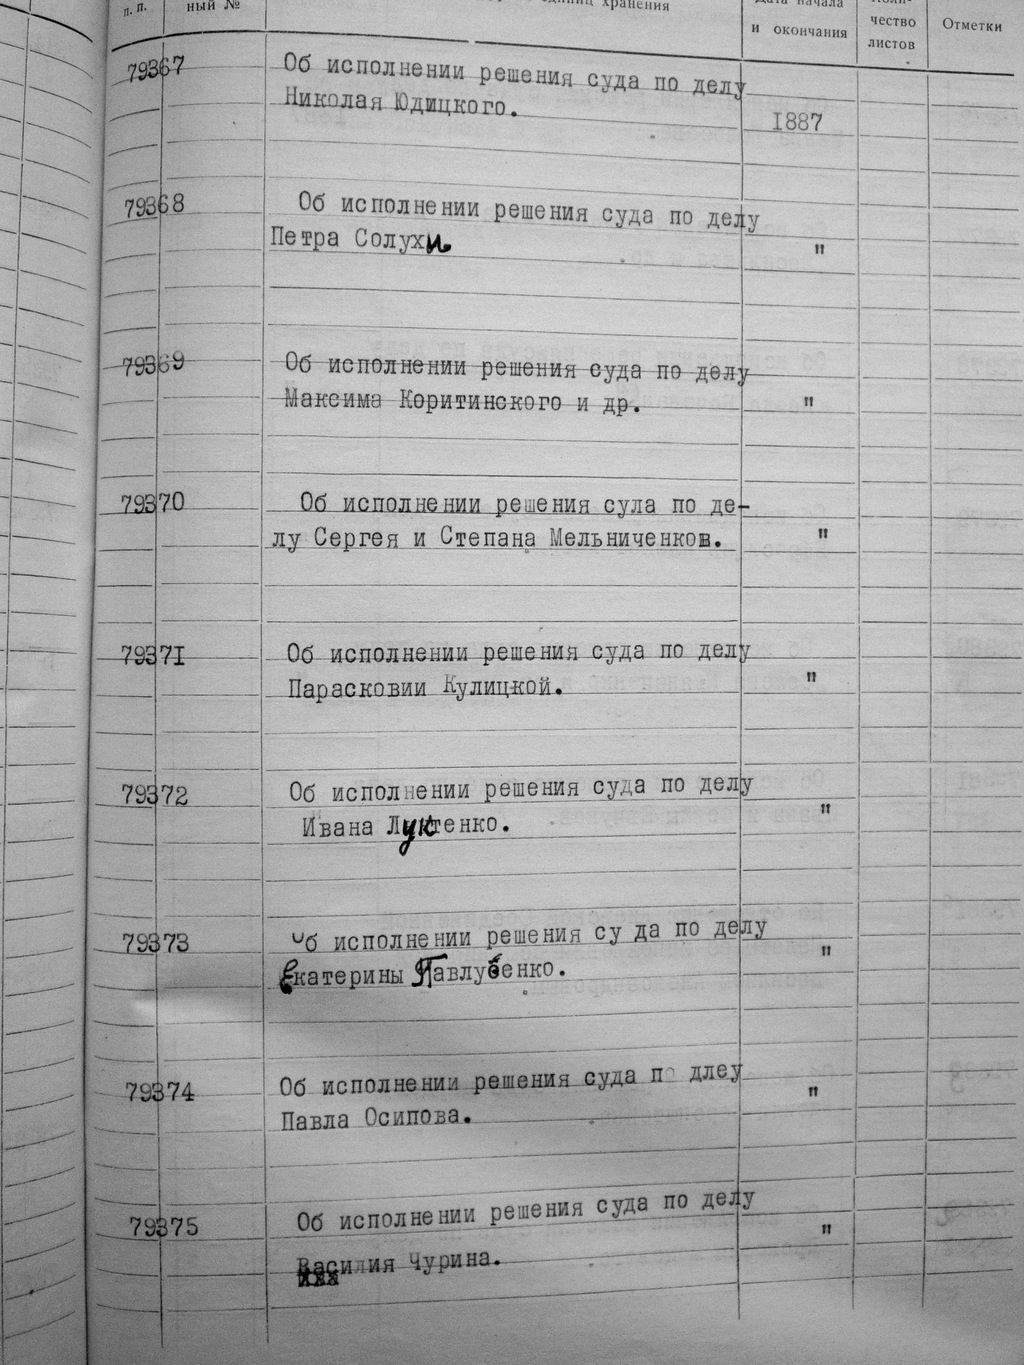 п. п.
ный №
единиц хранения
Дата начала
и окончания
чество
листов
Отметки
79367
Об исполнении решения суда по делу
Николая Юдицкого.
1887
79368
Об исполнении решения суда по делу
Петра Солухи.
"
79369
Об исполнении решения суда по делу
Максима Коритинского и др.
"
79370
Об исполнении решения сула по де-
лу Сергея и Степана Мельниченков.
"
79371
Об исполнении решения суда по делу
Парасковии Кулицкой.
"
79372
Об исполнении решения суда по делу
Ивана Луктенко.
"
79373
Об исполнении решения су да по делу
Екатерины Павлубенко.
"
79374
Об исполнении решения суда по длеу
Павла Осипова.
"
79375
Об исполнении решения суда по делу
Василия Чурина.
"